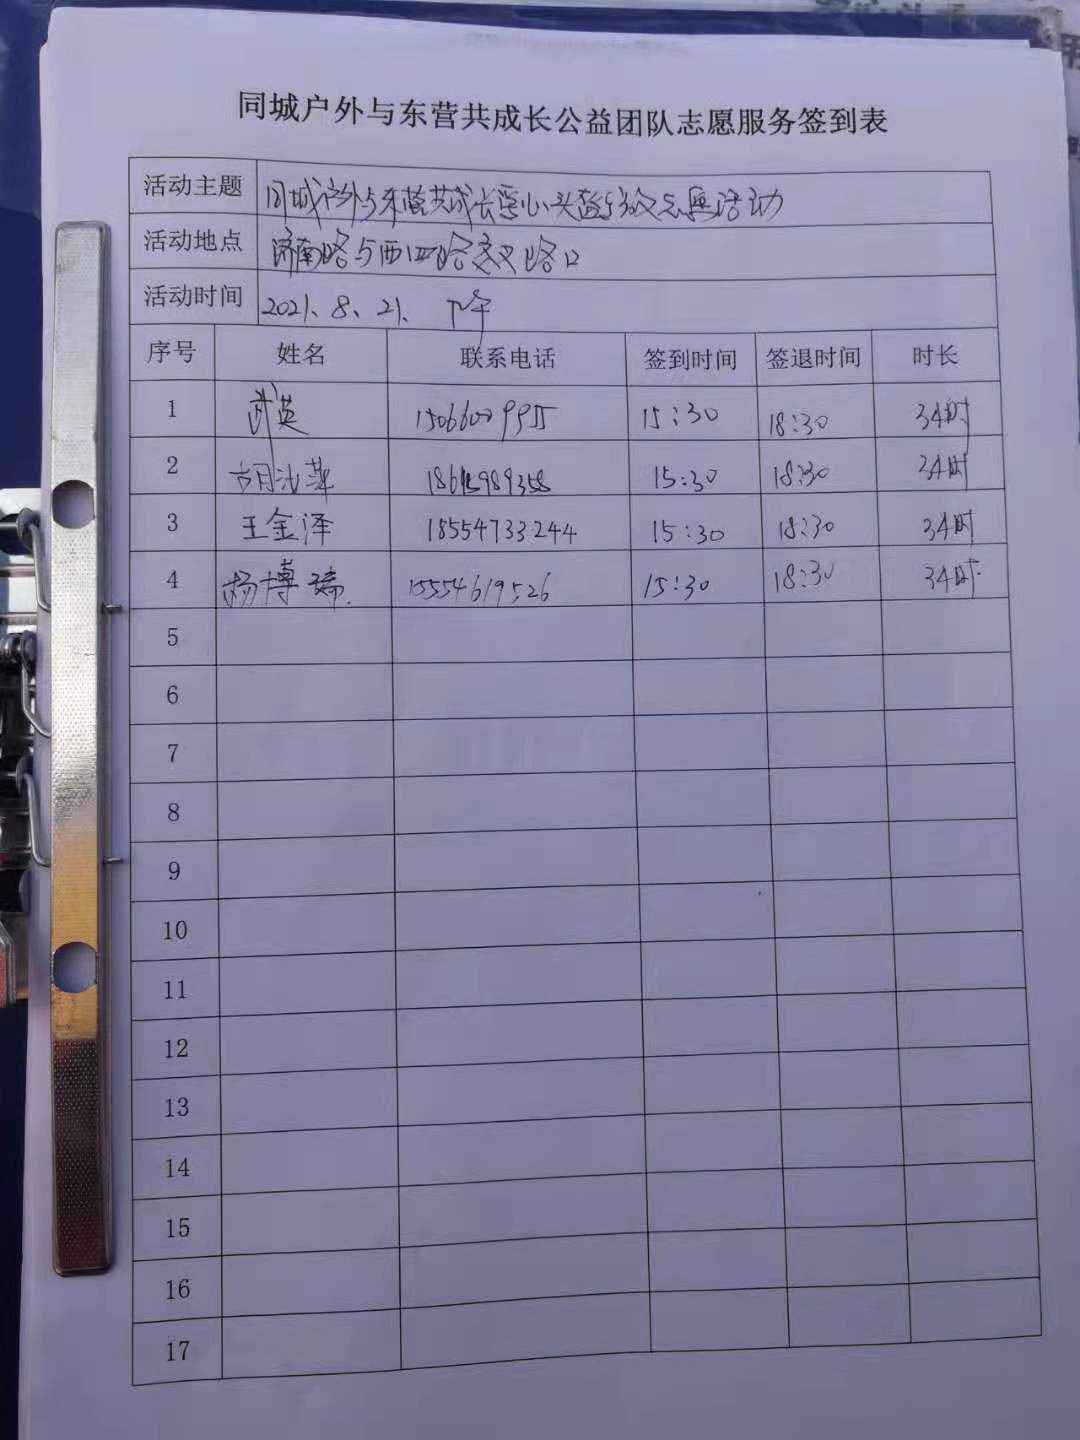 同城户外与东营共成长公益团队志愿服务签到表
活动主题 同城户外与东营共成长爱心头盔 志愿活动
活动地点 济南路与西四路交叉路口
活动时间 2021.8.21. 下午
序号 姓名 联系电话 签到时间 签退时间 时长
1 武英 15:30 18:30 3小时
2 胡 萍 15:30 18:30 3小时
3 王金泽 18554733244 15:30 18:30 3小时
4 杨博瑞. 15554619526 15:30 18:30 3小时.
5
6
7
8
9
10
11
12
13
14
15
16
17